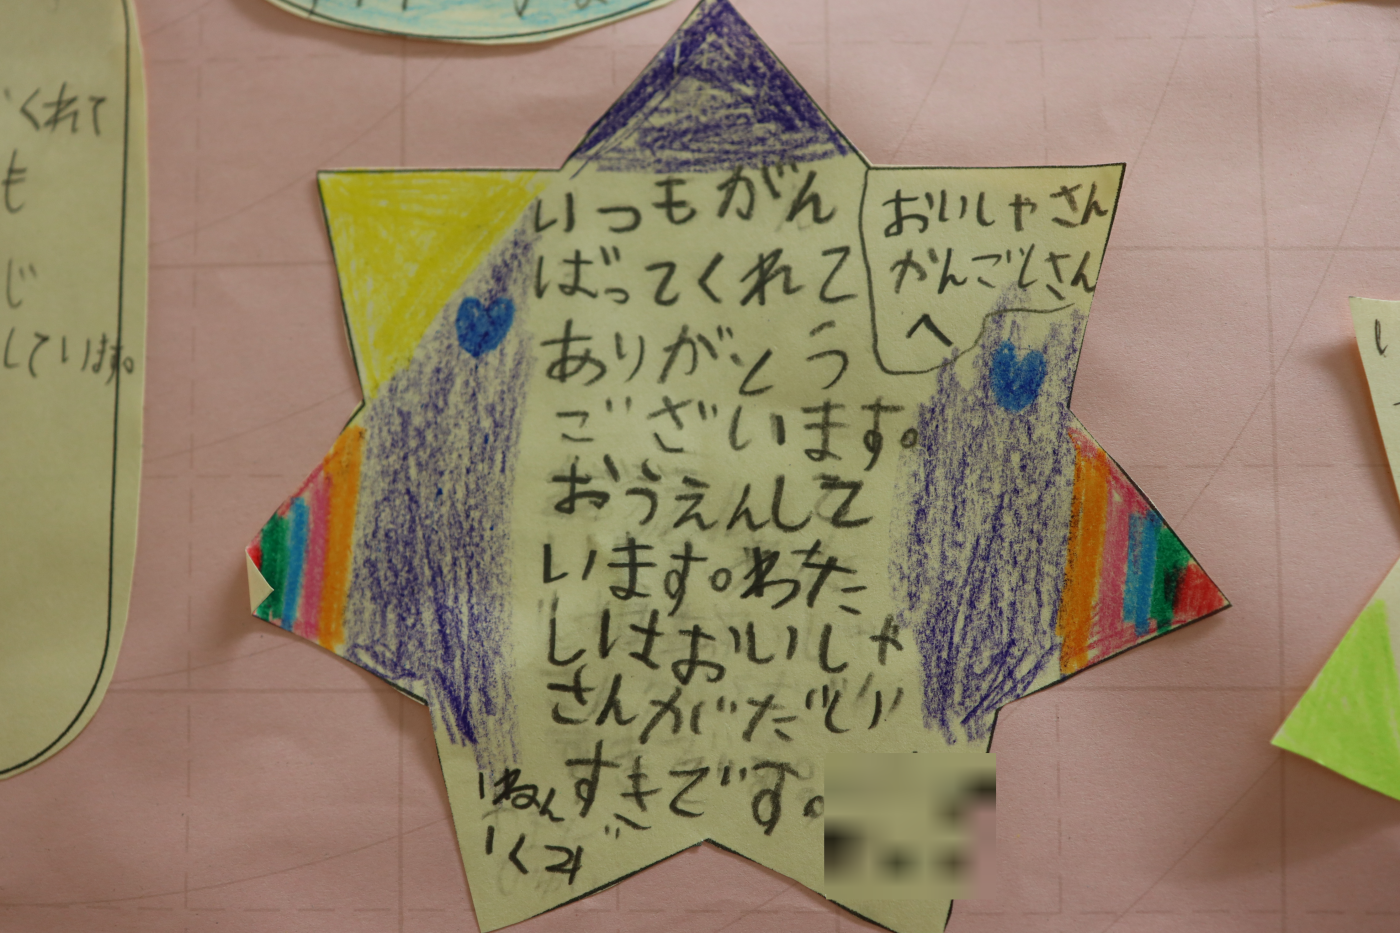 くれて
も
じ
しています。
おいしゃさん
かんごしさん
へ
いつもがん
ばってくれて
ありがとう
ございます。
おうえんして
います。わた
しはおいしゃ
さんがだい
すきです。
1ねん
1くみ